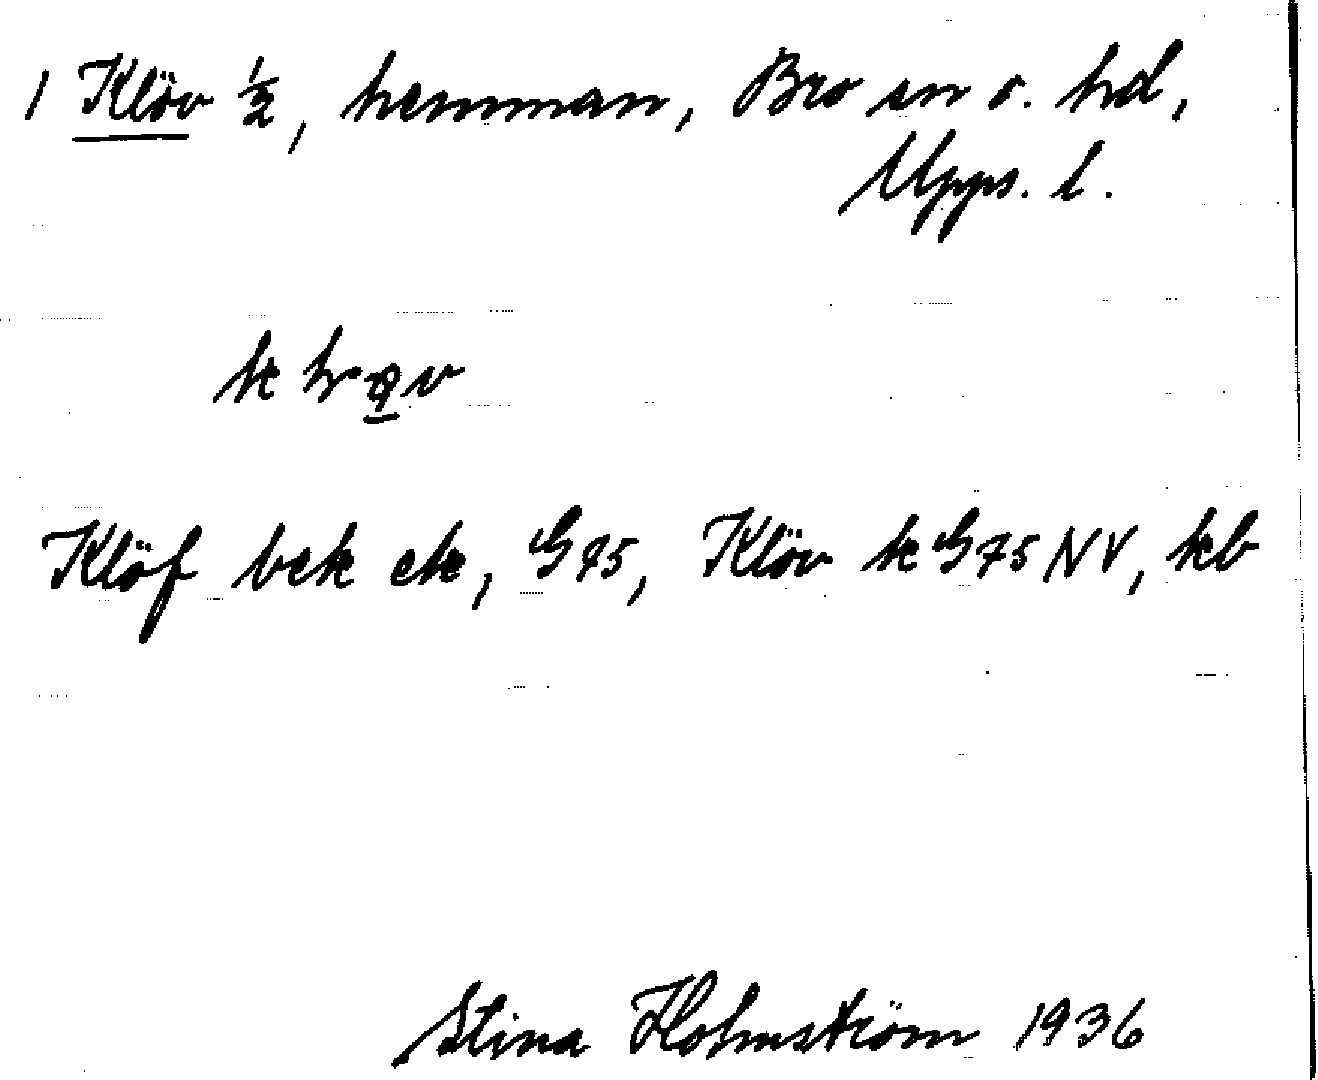 1 Klöv ½, hemman, Bro sn o. hd,
Upps. l.
Klöf bek ek, G 95, Klöv k G 75 NV, kb
Stina Holmström 1936